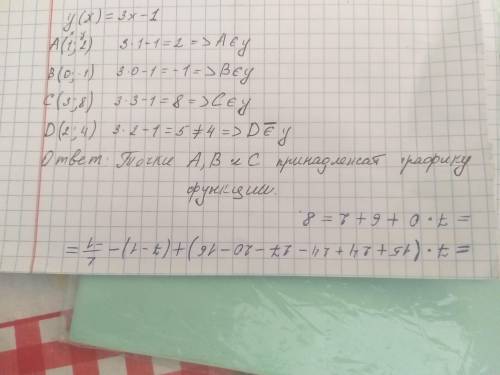 y(x) = 3x - 1
A(1; 2) 3·1-1=2 => A∈y
B(0; -1) 3·0-1=-1 => B∈y
C(3; 8) 3·3-1=8 => C∈y
D(2; 4) 3·2-1=5≠4 => D∉y
Ответ: Точки A, B и C принадлежат графику
функции.
= 7·(15+24+24-27-20-16)+(7-1)- =
= 7·0+6+2=8.